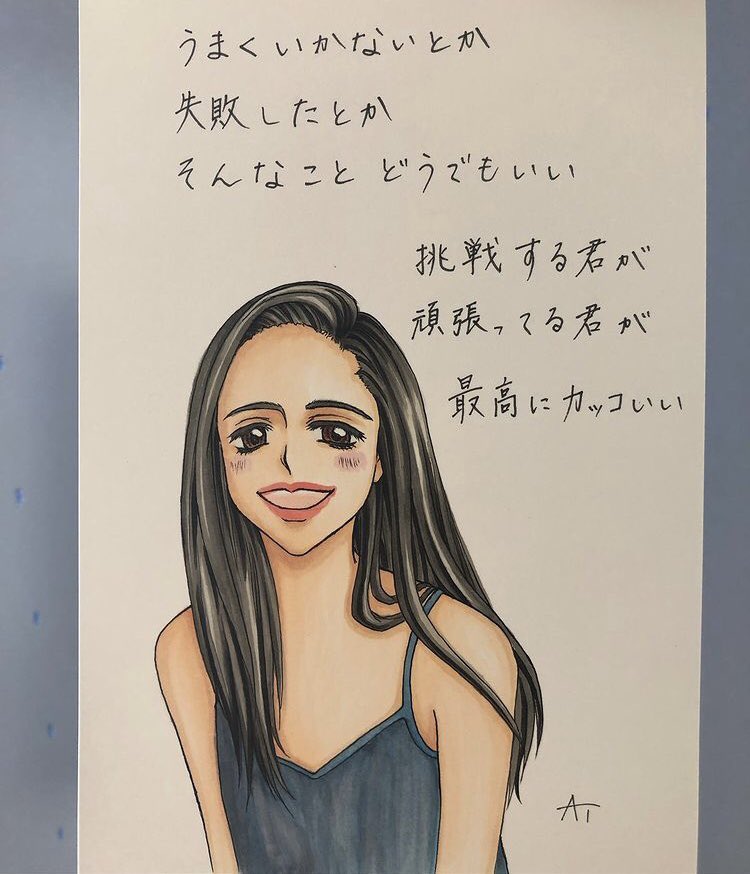 うまくいかないとか
失敗したとか
そんなこと どうでもいい
挑戦する君が
頑張ってる君が
最高にカッコいい